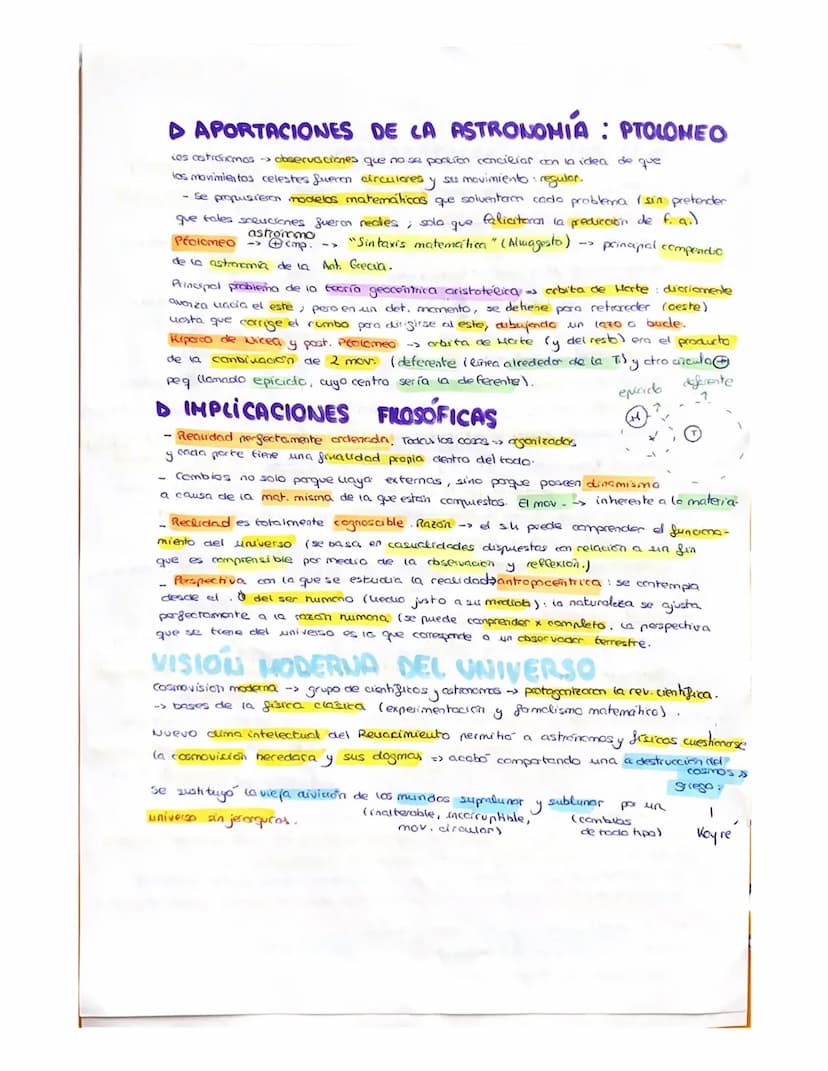 ▷ APORTACIONES DE LA ASTRONOMÍA : PTOLOMEO
Los astrónomos -> observaciones que no se podían conciliar con la idea de que
los movimientos celestes fueran circulares y su movimiento : regular.
- Se propusieron modelos matemáticos que solventaran cada problema (sin pretender
que tales soluciones fueran reales ; solo que facilitaran la predicción de f. a.)
astrónomo
Ptolomeo -> ⊕ imp. -> "Sintaxis matemática" (Almagesto) -> principal compendio
de la astronomía de la Ant. Grecia.
Principal problema de la teoría geocéntrica aristotélica => orbita de Marte : diariamente
avanza hacia el este ; pero en un det. momento, se detiene para retroceder (oeste)
hasta que corrige el rumbo para dirigirse al este, dibujando un lazo o bucle.
Hiparco de Nicea y post. Ptolomeo -> orbita de Marte (y del resto) era el producto
de la combinación de 2 mov. (deferente (línea alrededor de la T) y otro círculo ⊕
peq llamado epiciclo, cuyo centro sería la deferente).
epiciclo deferente
? ?
M T
▷ IMPLICACIONES FILOSÓFICAS
- Realidad perfectamente ordenada. Todas las cosas -> organizadas
y cada parte tiene una finalidad propia dentro del todo.
- Cambios no solo porque haya externas, sino porque poseen dinamismo
a causa de la mat. misma de la que están compuestos. El mov. -> inherente a la materia.
- Realidad es totalmente cognoscible. Razón -> el s.h puede comprender el funciona-
miento del universo (se basa en casualidades dispuestas con relación a un fin
que es comprensible por medio de la observación y reflexión.)
- Perspectiva con la que se estudia la realidad -> antropocéntrica : se contempla
desde el del ser humano (hecho justo a su medida) : la naturaleza se ajusta
perfectamente a la razón humana (se puede comprender x completo. La perspectiva
que se tiene del universo es la que corresponde a un observador terrestre.
VISIÓN MODERNA DEL UNIVERSO
Cosmovisión moderna -> grupo de científicos y astrónomos -> protagonizaron la rev. científica.
-> bases de la física clásica (experimentación y formalismo matemático).
Nuevo clima intelectual del Renacimiento permitió a astrónomos y físicos cuestionarse
la cosmovisión heredada y sus dogmas => acabó comportando una "destrucción del
cosmos
griego.
Se sustituyó la vieja división de los mundos supralunar y sublunar por un
universo sin jerarquías. (inalterable, incorruptible, (cambios
mov. circular) de todo tipo) Koyré